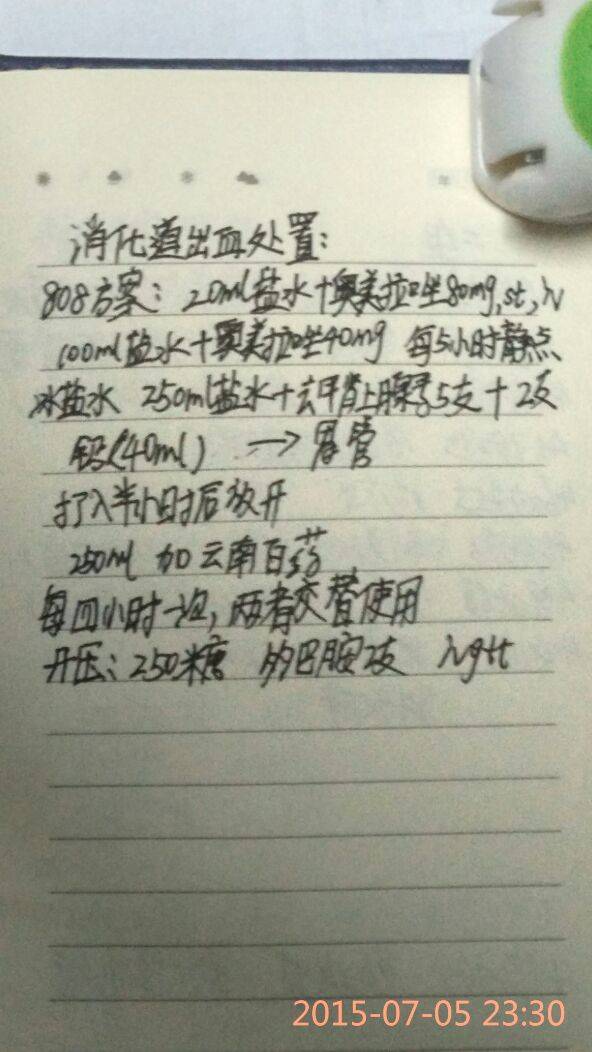 消化道出血处置:
808方案: 20ml盐水+奥美拉唑80mg,st,iv
100ml盐水+奥美拉唑40mg 每5小时静点
冰盐水 250ml盐水+去甲肾上腺素5支+2支
(40ml) → 胃管
打入半小时后放开
250ml 加云南百药
每四小时一泡,两者交替使用
升压: 250糖 多巴胺2支 ivgtt
2015-07-05 23:30